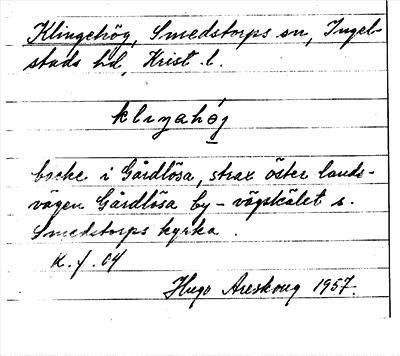 Klingehög, Smedstorps sn, Ingel-
stads hd, Krist. l.
klɩŋahög
backe i Gårdlösa, strax öster lands-
vägen Gårdlösa by - vägskälet s.
Smedstorps kyrka.
K. f. 04
Hugo Areskoug 1957.